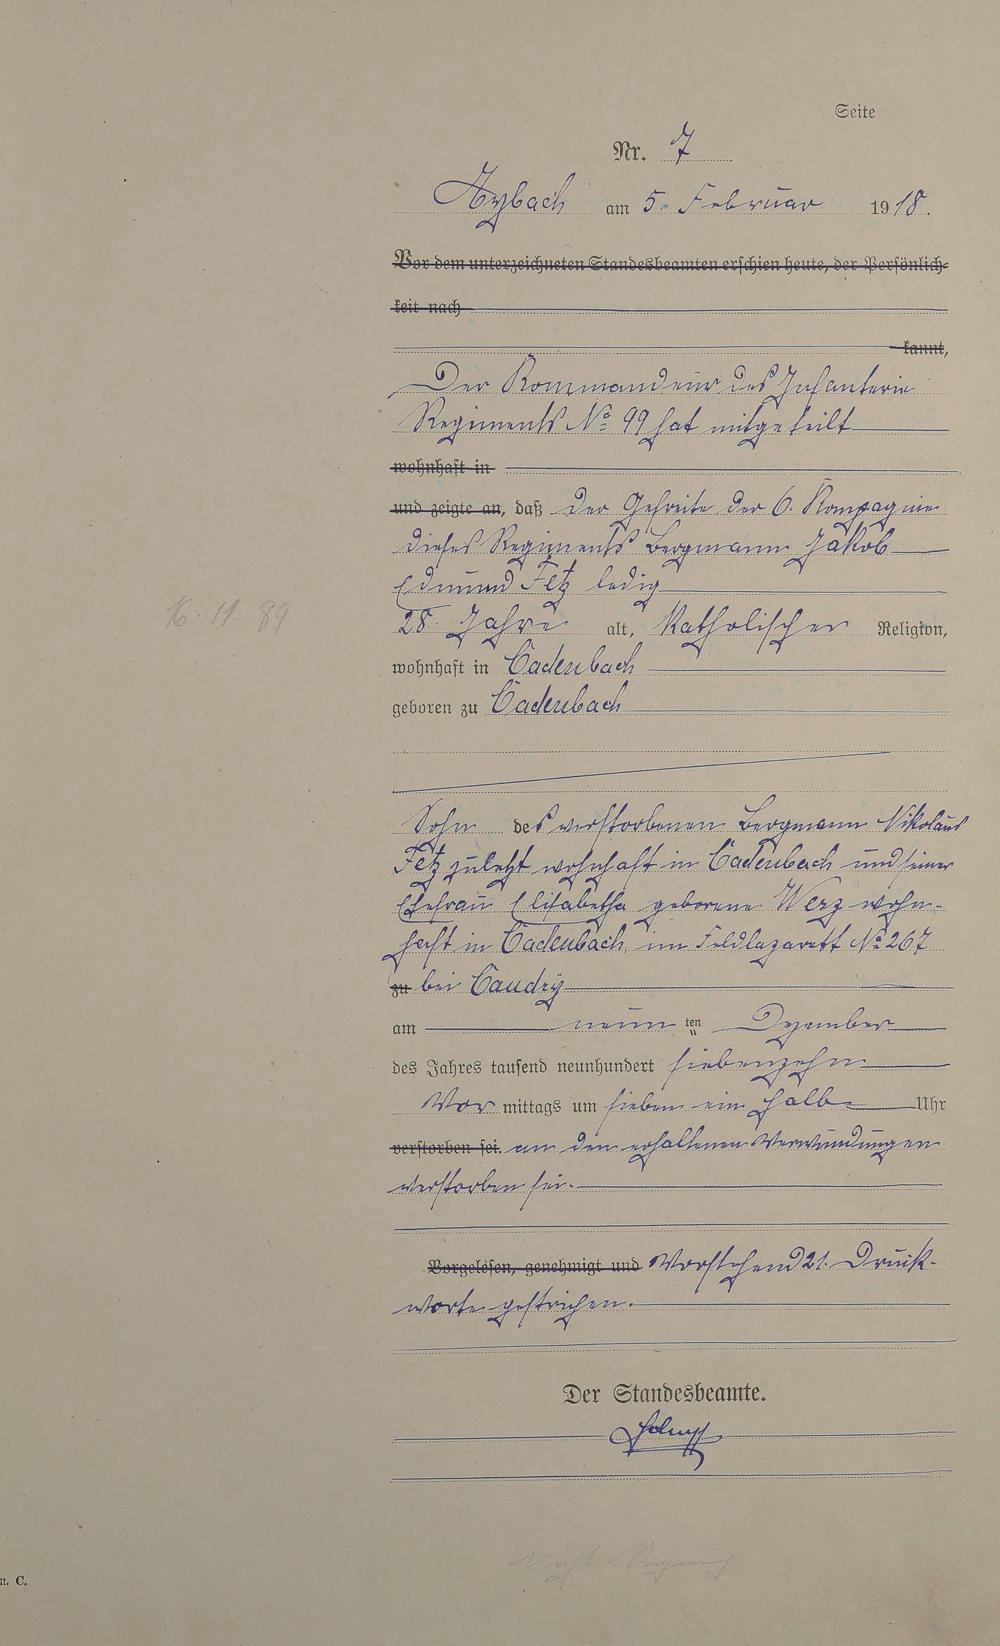 Seite
Nr. 7
Aybach am 5. Februar 1918.
Vor dem unterzeichneten Standesbeamten erschien heute, der Persönlich-
keit nach
kannt,
Der Kommandeur des Infanterie
Regiments No 99 hat mitgeteilt
wohnhaft in
und zeigte an, daß der Gefreite der 6. Kompagnie
dieses Regiments Bergmann Jakob
Edmund Fetz ledig
28 Jahre alt, katholischer Religion,
wohnhaft in Cadenbach
geboren zu Cadenbach
Sohn des verstorbenen Bergmann Nikolaus
Fetz zuletzt wohnhaft in Cadenbach und seiner
Ehefrau Elisabetha geborene Werz wohn-
haft in Cadenbach, im Feldlazarett No 267
zu bei Caudry
am neun ten Dezember
des Jahres tausend neunhundert siebenzehn
Vor mittags um sieben ein halb Uhr
verstorben sei. an den erhaltenen Verwundungen
verstorben sei.
Vorgelesen, genehmigt und Vorstehend 21. Druck-
worte gestrichen.
Der Standesbeamte.
16. 11. 89
n. C.